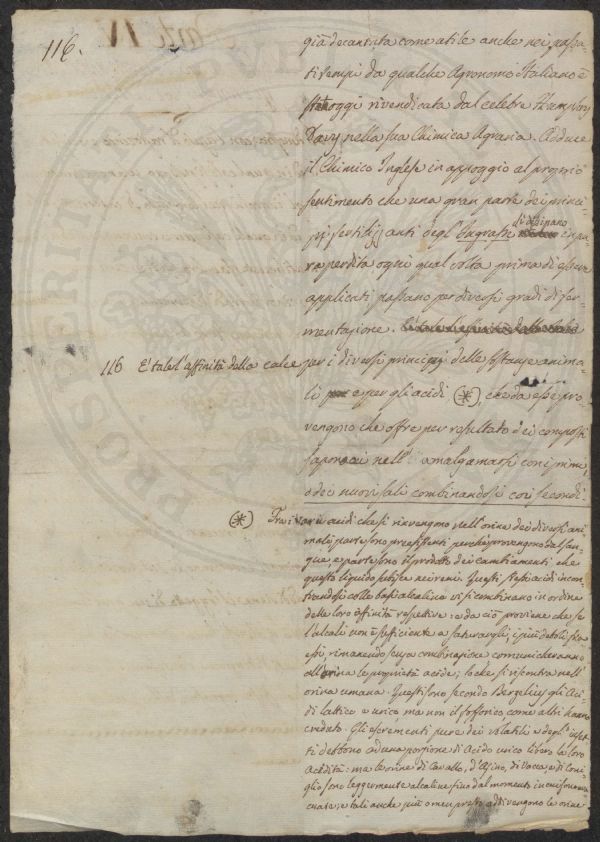 116.
già decantata come utile anche nei passa-
ti tempi da qualche Agronomo Italiano è
oggi rivendicata dal celebre Humphry
Davy nella sua Chimica Agraria. Adduce
il Chimico Inglese in appoggio al proprio
sentimento che una gran parte dei princi-
pj fertilizzanti degl' Ingrassi si dissipano in pu-
ra perdita ogni qual volta prima di essere
applicati passano per diversi gradi di fer-
mentazione.
116 E' tale l'affinità della calce per i diversi principj delle sostanze anima-
li e per gli acidi (*), che da esse pro-
vengono che offre per resultato dei composti
saponacei nell' amalgamarsi con i primi,
o dei nuovi sali combinandosi coi secondi.
(*) Fra i varii acidi che si rinvengono nell'orine dei diversi ani-
mali parte sono preesistenti perchè provengono dal san-
gue, e parte sono il prodotto dei cambiamenti che
questo liquido subisce nei reni. Questi stessi acidi incon-
trandosi colle basi alcaline vi si combinano in ordine
delle loro affinità respettive: e da ciò proviene che se
l'alcali non è sufficiente a saturargli, i più deboli fra
essi, rimanendo senza combinazione comunicheranno
all'orina le proprietà acide; lo che si riscontra nell'
orina umana. Questi sono secondo Berzelius gli Aci-
di lattico e urico ma non il fosforico come altri hanno
creduto. Gli escrementi pure dei volatili e degl' inset-
ti debbono ad una porzione di Acido urico libero la loro
Acidità: ma le orine di Cavallo, d'Asino, di Vacca, e di Coni-
glio sono leggermente alcaline fino dal momento in cui sono eva-
cuate; e tali anche più o men presto addivengono le orine